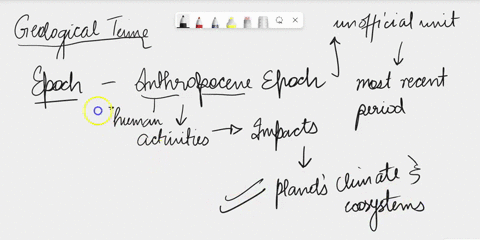 Geological Time
unofficial unit
Epoch - Anthropocene Epoch
most recent
period
"human
activities → Impacts
planet's climate &
ecosystems